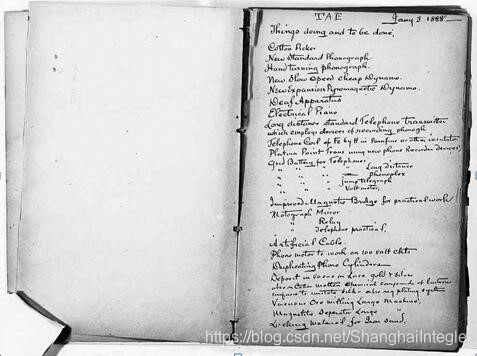 TAE Jany 3 1888
Things doing and to be done,
Cotton Picker
New Standard Phonograph
Hand turning phonograph.
New Slow speed cheap Dynamo.
New Expansion Pyromagnetic Dynamo.
Deaf Apparatus
Electrical Piano
Long distance standard Telephone Transmitter
which employs devices of recording phonogh
Telephone Coil of Fe by tt in Parafine or other insulator
Platina Point Trans using new phono Recorder devices
Grid Battery for Telephones,
" " " Long distance
" " " Phonoplex
" " " Jump telegraph
" " " Voltmeter,
Improved Magneto Bridge for practical work
Motograph Mirror
" Relay
" Telephone practical,
Artificial Cable.
Phono motor to work on 100 volt ckts
Duplicating Phono Cylinders
Deposit in vacuo on Lace gold & silver
also on Cotton molten chemical compound of lustrous
surface to imitate silk - also reg plating system
Vacuous Ore milling Large Machine,
Magnetic Separator Large "
Locking material for Iron sand,
https://blog.csdn.net/ShanghaiIntegle